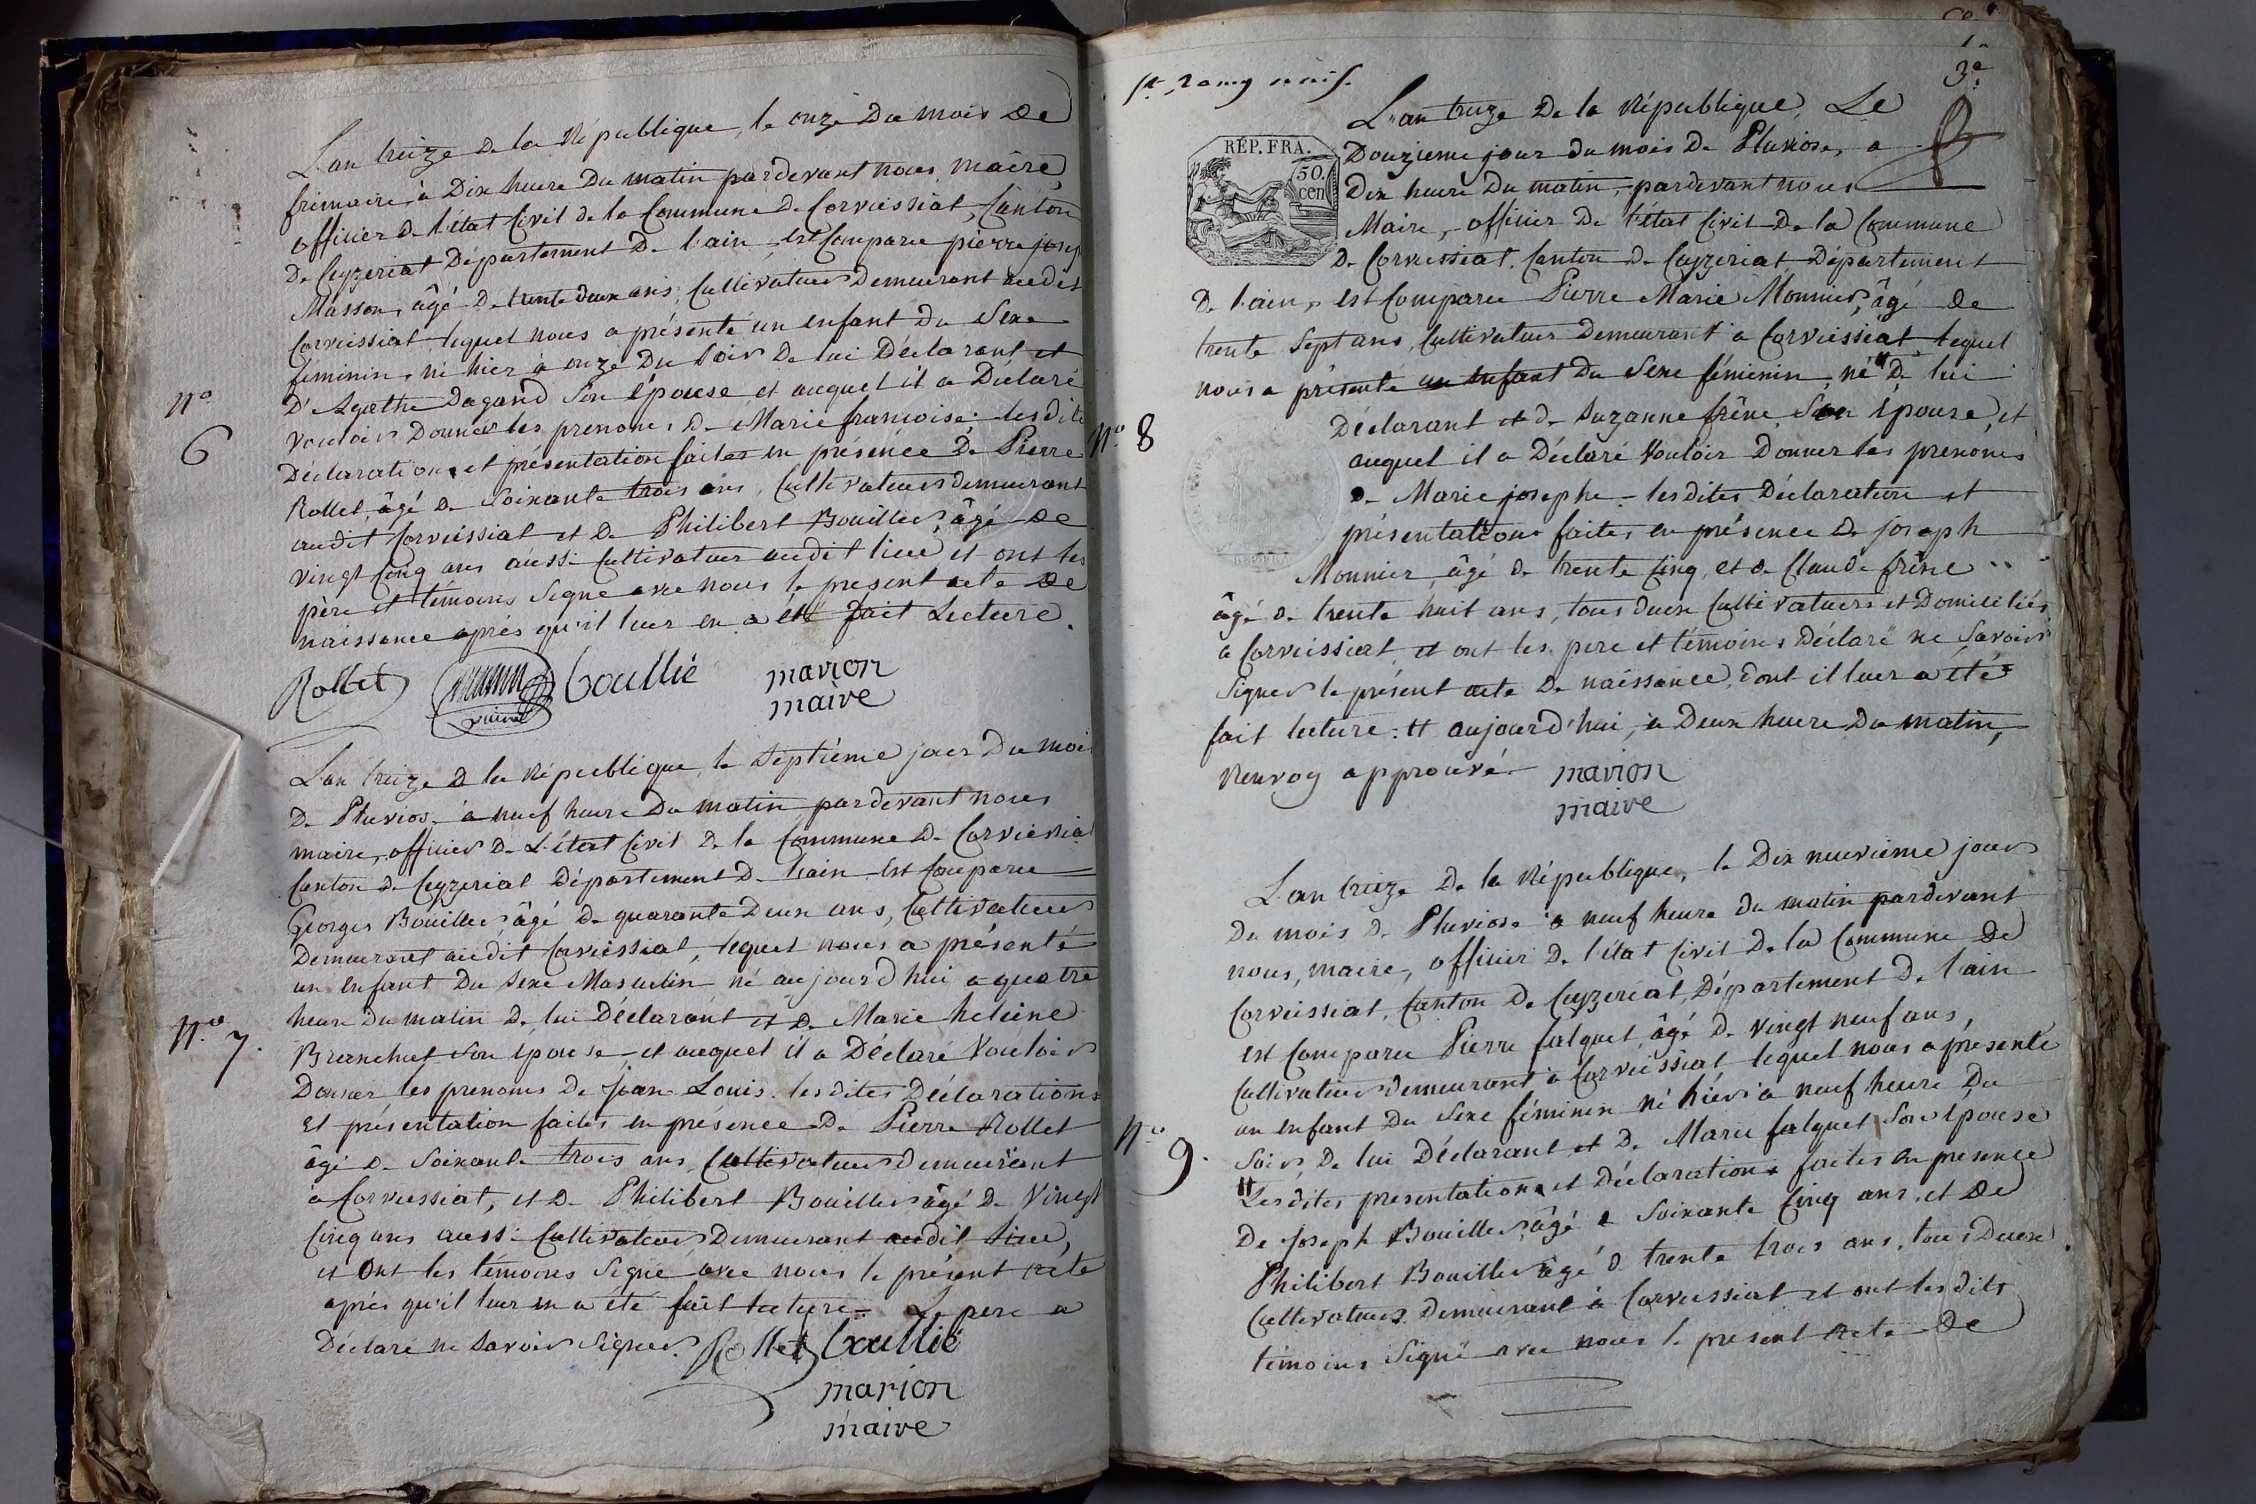 L'an treize de la République, le onze du mois de
frimaire à Dix heure du matin pardevant nous maire
officier de l'état Civil de la Commune de Corveissiat, Canton
de Ceyzeriat Département de l'ain est Comparu pierre josep
Masson, âgé de trente deux ans, Cultivateur demeurant audit
Corveissiat lequel nous a présenté un enfant du Sexe
féminin, né hier à onze du Soir de lui Déclarant et
d'Agathe Dagand Son épouse et auquel il a Déclaré
vouloir Donner les prenoms de Marie françoise. lesdite
Déclaration et présentation faites en présence de Pierre
Rollet, âgé de Soixante trois ans, Cultivateur demeurant
audit Corveissiat et de Philibert Bouillier, âgé de
vingt Cinq ans aussi Cultivateur audit lieu et ont les
père et témoins Signé avec nous le présent acte de
naissance après qu'il leur en a été fait Lecture.
N.o
6
Rollet boullié marion
maire
L'an treize de la République, le Septième jour du moi
de Pluviose à neuf heure du matin pardevant nous
maire, officier de L'état Civil de la Commune de Corveissia
Canton de Ceyzeriat Département de l'ain Est Comparu
Georges Bouillier, âgé de quarante Deux ans, Cultivateur
Demeurant audit Corveissiat, lequel nous a présenté
un Enfant du Sexe Masculin né aujourd'hui à quatre
heure du matin de lui Déclarant et de Marie heleine
Branchut Son épouse et auquel il a Déclaré Vouloir
Donner les prenoms de Jean Louis. lesdites Déclarations
Et présentation faites en présence de Pierre Rollet
âgé de Soixante trois ans Cultivateur demeurant
à Corveissiat, et de Philibert Bouillier âgé de Vingt
Cinq ans aussi Cultivateur Demeurant audit lieu,
et Ont les témoins Signé avec nous le présent acte
après qu'il leur en a été fait lecture. Le pere a
Déclaré ne Savoir Signer. Rollet boullié
N.o 7.
marion
maire
3e
L'an treize de la République, Le
RÉP. FRA.
50.
cen
Douzieme jour du mois de Pluviose, a
dix heure du matin, pardevant nous
Maire, officier de l'état Civil de la Commune
de Corveissiat, Canton de Ceyzeriat Département
de l'ain, est Comparu Pierre Marie Monnier, âgé de
trente Sept ans, Cultivateur demeurant à Corveissiat lequel
nous a présenté un enfant du Sexe féminin, né # de lui
Déclarant et de Suzanne frêne Son épouse, et
auquel il a Déclaré Vouloir Donner les prenoms
de Marie josephe lesdites Déclaration et
présentation faites en présence de joseph
Monnier, âgé de trente Cinq, et de Claude frêne
âgé de trente huit ans, tous deux Cultivateurs et Domiciliés
à Corveissiat et ont les pere et témoins Déclaré ne Savoir
Signer le présent acte de naissance, dont il leur a été
fait lecture: # aujourd'hui, à Deux heure du matin,
Renvoy approuvé. marion
maire
N.o 8
L'an treize de la République, le Dix neuvieme jour
du mois de Pluviose à neuf heure du matin pardevant
nous, maire, officier de l'état Civil de la Commune de
Corveissiat, Canton de Ceyzeriat, Département de l'ain
est Comparu Pierre falquet, âgé de vingt neuf ans,
Cultivateur demeurant à Corveissiat lequel nous a présenté
un enfant du Sexe féminin né hier à neuf heure du
Soir de lui Déclarant et de Marie falquet Son épouse
# Lesdites presentation et Déclaration faites en presence
De Joseph Bouillier, âgé de Soixante Cinq ans, et de
Philibert Bouillier âgé de trente trois ans, tous Deux
Cultivateurs demeurant à Corveissiat et ont lesdits
témoins Signé avec nous le present acte de
N.o 9.